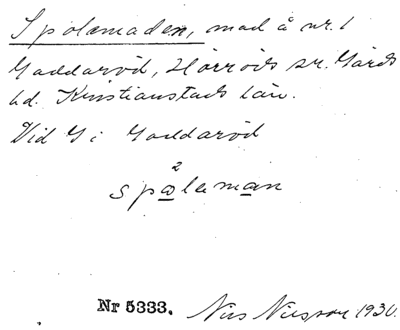 Spolamaden, mad å nr. 1
Gaddaröd, Hörröds sn. Gärds
hd. Kristianstads län.
Vid G i Gaddaröd
2
spolaman
Nr 5333. Nils Nilsson 1930.